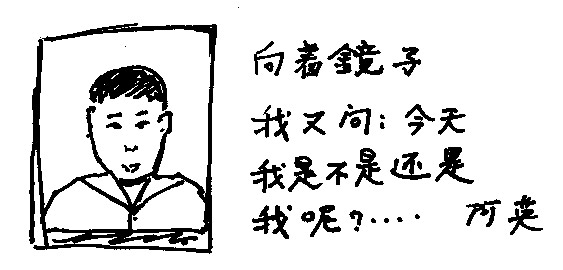 向着鏡子
我又问：今天
我是不是还是
我呢？…. 阿英